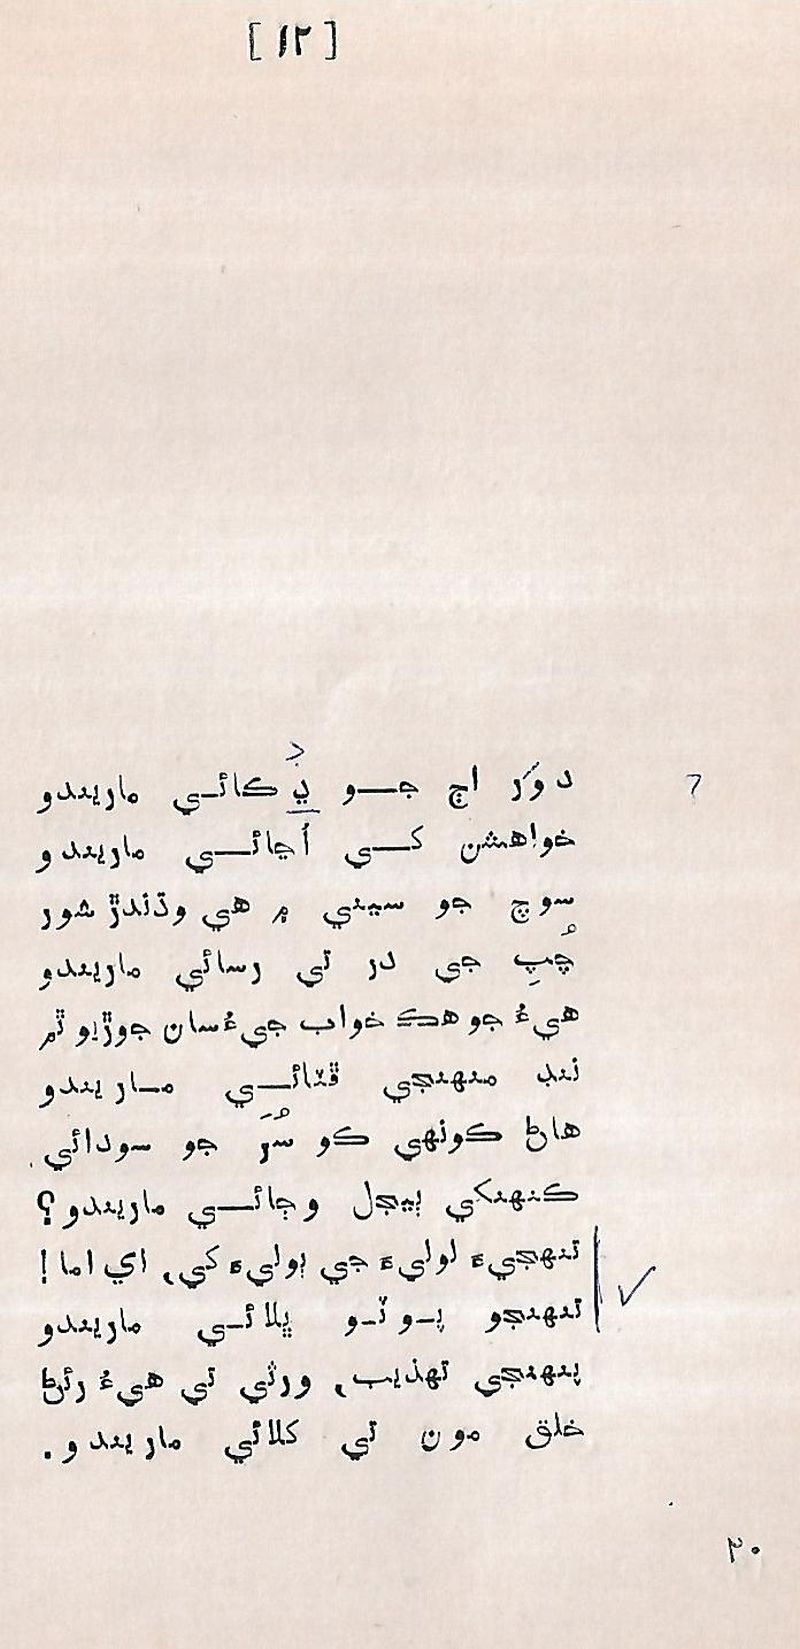 [ ۱۲ ]
دوَر اڄ جو ڀڪائي ماريندو
خواهشن کي اُڃائي ماريندو
سوچ جو سيني ۾ هي وڌندڙ شور
چُپِ جي در تي رسائي ماريندو
هيءُ جو هڪ خواب جيءُ سان جوڙيو ٿم
ننڊ منهنجي ڦٽائي ماريندو
هاڻ کونهي ڪو سُرَ جو سودائي
ڪنهنکي ٻيجل وڄائي ماريندو؟
تنهنجيءَ لوليءَ جي ٻوليءَ کي، اي اما!
تنهنجو پوٽو ڀلائي ماريندو
پنهنجي تهذيب، ورثي تي هيءُ رئڻ
خلق مون تي کلائي ماريندو.
۳۰